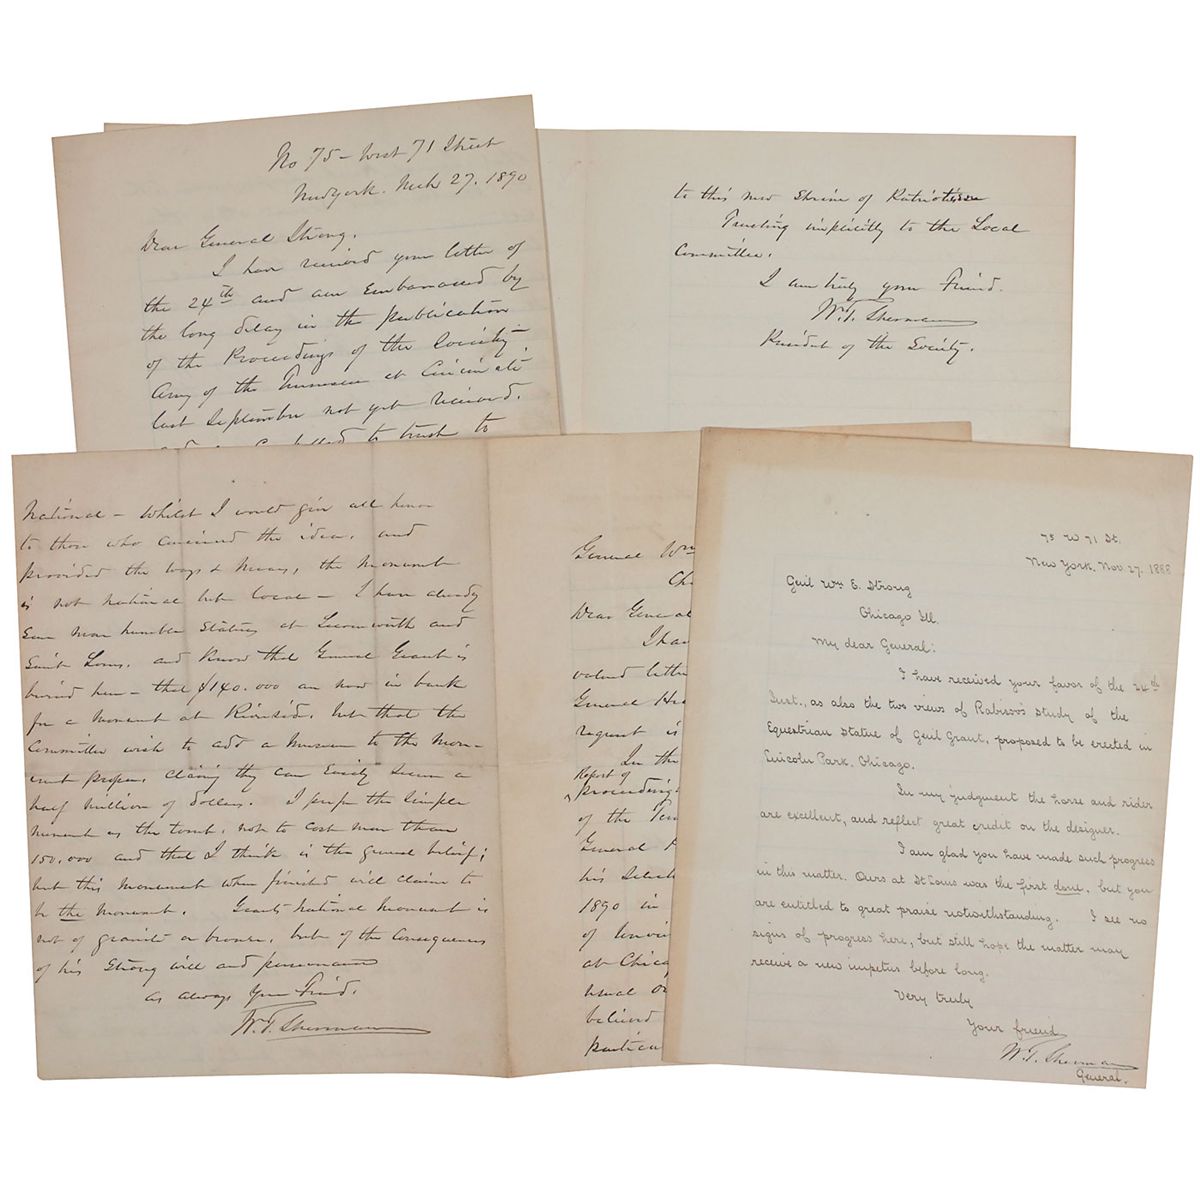 No 75 - West 71 Street
New York. Mch 27. 1890
Dear General Strong.
I have received your letter of
the 24th and am Embarrassed by
the long delay in the publication
of the Proceedings of the Society -
Army of the Tennessee at Cincinnati
last September not yet received.
to trust to
to this new Shrine of Patriotism
Trusting implicitly to the Local
Committee.
I am truly your Friend.
W.T. Sherman
President of the Society.
National - Whilst I would give all honor
to those who conceived the idea, and
provided the ways & Means, the Monument
is not National but Local - I have already
seen numbers Statues at Leavenworth and
Saint Louis, and Know that General Grant is
buried here - that $140.000 are now in bank
for a Monument at Riverside. but that the
Committee wish to add a Museum to the Mon-
ument proper, claiming they can Easily secure a
half million of dollars. I prefer the Simple
Monument as the tomb, not to cost more than
150.000 and that I think is the general belief;
but this Monument when finished will claim to
be the Monument. Grants National Monument is
not of granite or bronze, but of the Consequences
of his Strong will and
as always Your Friend.
W.T. Sherman
General Wm
Ch
Dear General
I hav
valued letter
General
request is
In the
Report of
Proceeding
of the Ten
General
his
1890 in
of
at Chica
usual
believed
particu
75 W 71 St.
New York, Nov. 27. 1888
Genl Wm E. Strong
Chicago Ill.
My dear General:
I have received your favor of the 24th
Inst., as also the two views of Rebisso's study of the
Equestrian statue of Genl Grant, proposed to be erected in
Lincoln Park, Chicago.
In my judgment the horse and rider
are excellent, and reflect great credit on the designer.
I am glad you have made such progress
in this matter. Ours at St Louis was the first done, but you
are entitled to great praise notwithstanding. I see no
signs of progress here, but still hope the matter may
receive a new impetus before long.
Very truly
Your friend
W.T. Sherman
General.